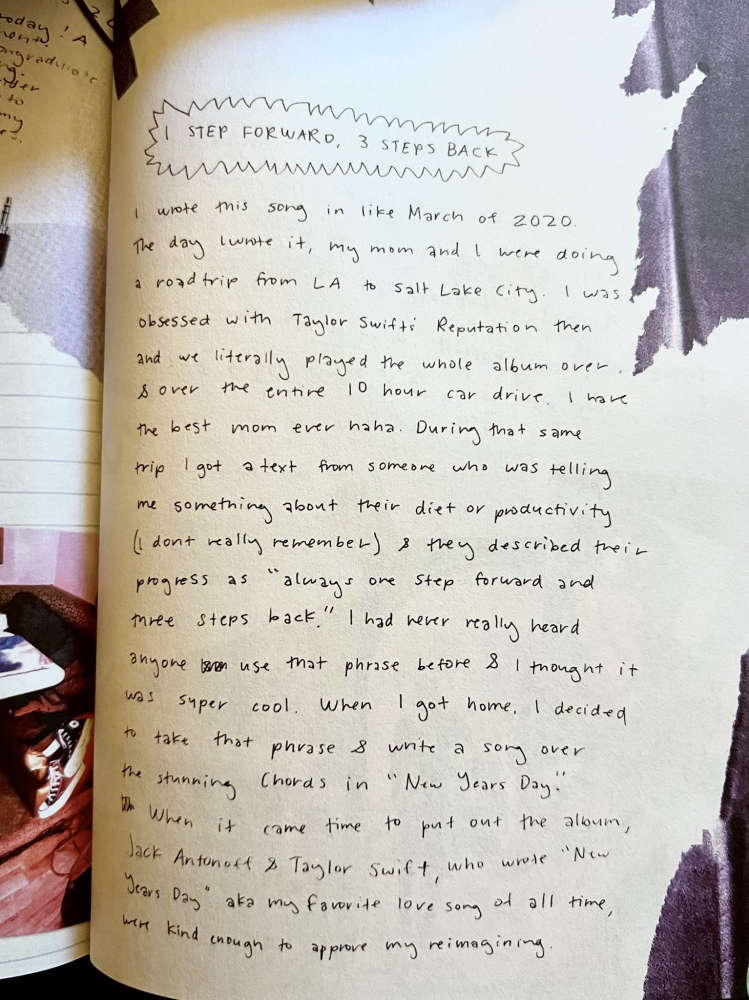 today! A
to
my
1 STEP FORWARD, 3 STEPS BACK
I wrote this song in like March of 2020.
The day I wrote it, my mom and I were doing
a road trip from LA to Salt Lake City. I was
obsessed with Taylor Swifts' Reputation then
and we literally played the whole album over
& over the entire 10 hour car drive. I have
the best mom ever haha. During that same
trip I got a text from someone who was telling
me something about their diet or productivity
(I dont really remember) & they described their
progress as "always one step forward and
three steps back." I had never really heard
anyone use that phrase before & I thought it
was super cool. When I got home, I decided
to take that phrase & write a song over
the stunning Chords in "New Years Day."
When it came time to put out the album,
Jack Antonoff & Taylor Swift, who wrote "New
Years Day" aka my favorite love song of all time,
were kind enough to approve my reimagining.